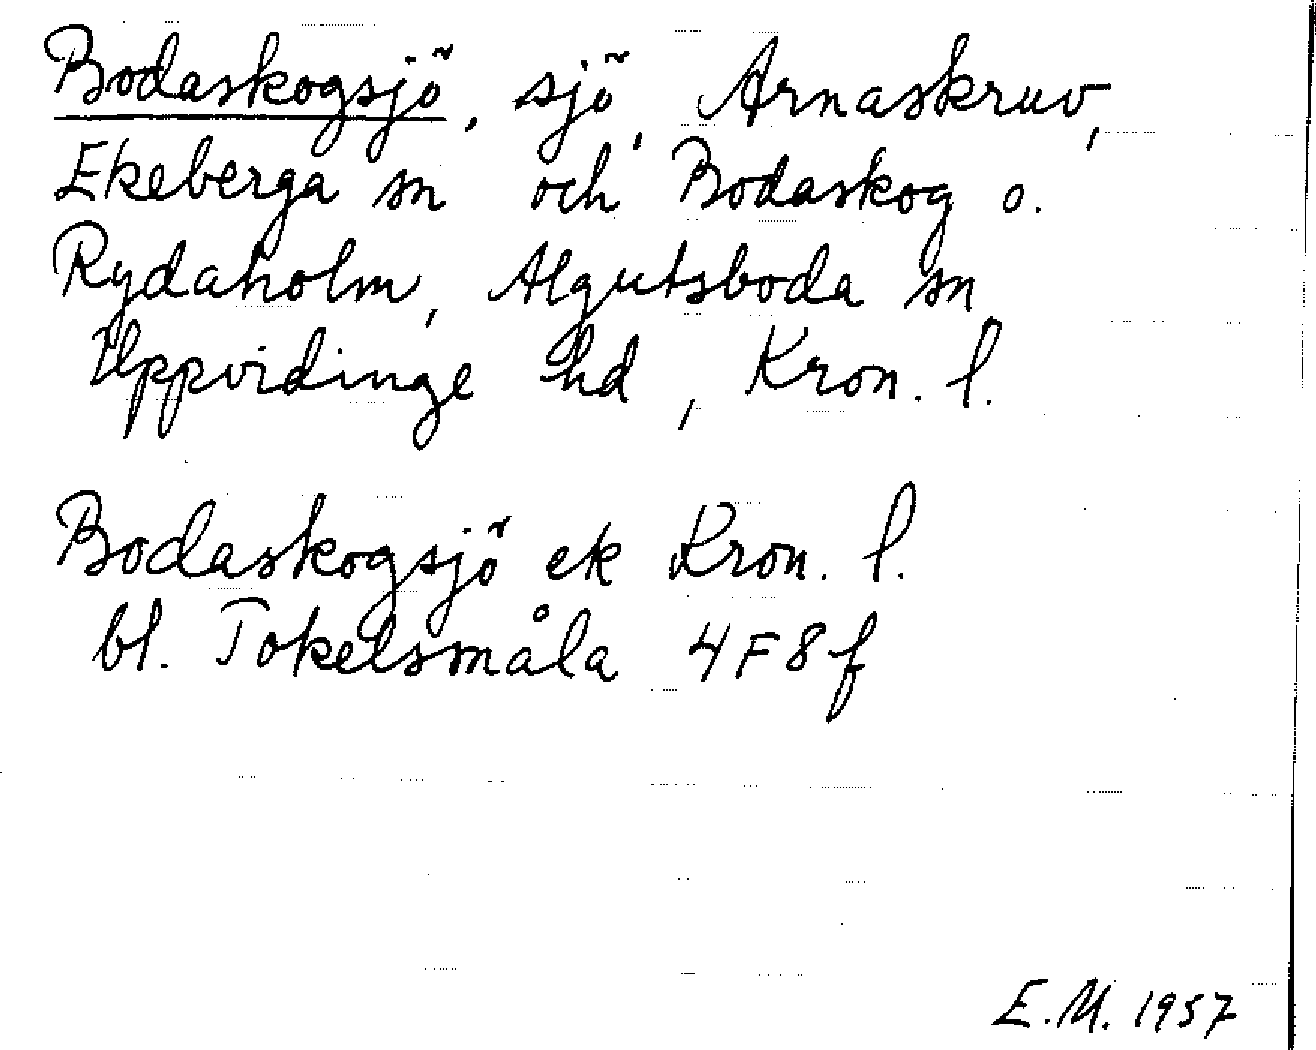 Bodaskogsjö, sjö, Arnaskruv,
Ekeberga sn och Bodaskog o.
Rydaholm, Algutsboda sn
Uppvidinge hd, Kron. l.
Bodaskogsjö ek Kron. l.
bl. Tokelsmåla 4F8f
E.M. 1957